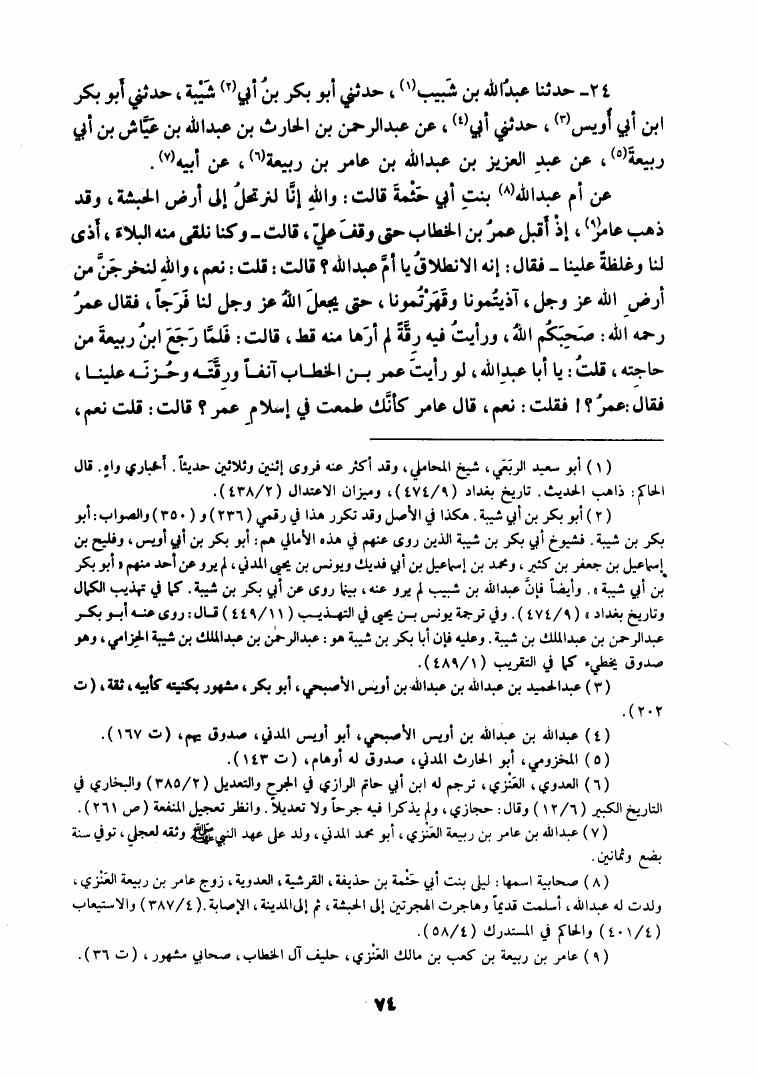 ٢٤ـ حدثنا عبدُالله بن شَبيب(١) ، حدثني أبو بكر بنُ أبي(٢) شَيْبة ، حدثني أبو بكر
ابن أبي أُويس(٣) ، حدثني أبي(٤) ، عن عبدالرحمن بن الحارث بن عبدالله بن عَيَّاش بن أبي
ربيعةَ(٥) ، عن عبدِ العزيز بن عبدالله بن عامر بن ربيعة(٦) ، عن أبيه(٧) .
عن أم عبدالله(٨) بنتِ أبي حَثْمةَ قالت : واللهِ إنَّا لنرتحلُ إلى أرض الحبشة ، وقد
ذهب عامرٌ(٩) ، إذْ أقبل عمرُ بن الخطاب حتى وقفَ عليّ ، قالت ـ وكنا نلقى منه البلاءَ ، أَذى
لنا وغلظةً علينا ـ فقال : إنه الانطلاقُ يا أمَّ عبدالله ؟ قالت : قلت : نعم ، واللهِ لنخرجَنَّ من
أرضِ الله عز وجل ، آذيتُمونا وقهَرْتُمونا ، حتى يجعلَ اللهُ عز وجل لنا فَرَجاً ، فقال عمرُ
رحمه الله : صَحِبَكُم اللهُ ، ورأيتُ فيه رِقَّةً لم أرَها منه قط ، قالت : فلمَّا رَجَعَ ابنُ ربيعة من
حاجتِه ، قلتُ : يا أبا عبدِالله ، لو رأيتَ عمر بن الخطاب آنفاً ورِقَّتَه وحُزنَه علينا ،
فقال :عمرُ ؟ ! فقلت : نعم ، قال عامر كأنَّك طمعت في إسلامِ عمر ؟ قالت : قلت نعم ،
(١) أبو سعيد الربَعَي ، شيخ المحاملي ، وقد أكثر عنه فروى إثنين وثلاثين حديثاً . أخباري واهٍ . قال
الحاكم : ذاهب الحديث . تاريخ بغداد (٤٧٤/٩) ، وميزان الاعتدال (٤٣٨/٢) .
(٢) أبو بكر بن أبي شيبة . هكذا في الأصل وقد تكرر هذا في رقمي (٢٣٦) و (٣٥٠) والصواب : أبو
بكر بن شيبة . فشيوخ أبي بكر بن شيبة الذين روى عنهم في هذه الأمالي هم : أبو بكر بن أبي أويس ، وفليح بن
إسماعيل بن جعفر بن كثير ، ومحمد بن إسماعيل بن أبي فديك ويونس بن يحيى المدني ، لم يرو عن أحد منهم « أبو بكر
بن أبي شيبة » . وأيضاً فإنَّ عبدالله بن شبيب لم يرو عنه ، بينما روى عن أبي بكر بن شيبة . كما في تهذيب الكمال
وتاريخ بغداد » (٤٧٤/٩) . وفي ترجمة يونس بن يحيى في التهذيب (٤٤٩/١١) قال : روى عنه أبو بكر
عبدالرحمن بن عبدالملك بن شيبة . وعليه فإن أبا بكر بن شيبة هو : عبدالرحمٰن بن عبدالملك بن شيبة الحِزامي ، وهو
صدوق يخطيء كما في التقريب (٤٨٩/١) .
(٣) عبدالحميد بن عبدالله بن عبدالله بن أويس الأصبحي ، أبو بكر ، مشهور بكنيته كأبيه ، ثقة ، ( ت
٢٠٢) .
(٤) عبدالله بن عبدالله بن أويس الأصبحي ، أبو أويس المدني ، صدوق يهم ، ( ت ١٦٧) .
(٥) المخزومي ، أبو الحارث المدني ، صدوق له أوهام ، ( ت ١٤٣) .
(٦) العدوي ، العَنْزي ، ترجم له ابن أبي حاتم الرازي في الجرح والتعديل (٣٨٥/٢) والبخاري في
التاريخ الكبير (١٢/٦) وقال : حجازي ، ولم يذكرا فيه جرحاً ولا تعديلاً . وانظر تعجيل المنفعة (ص ٢٦١) .
(٧) عبدالله بن عامر بن ربيعة العَنْزي ، أبو محمد المدني ، ولد على عهد النبي ﷺ وثقه لعجلي ، توفي سنة
بضع وثمانين .
(٨) صحابية اسمها : ليلى بنت أبي حَثْمة بن حذيفة ، القرشية ، العدوية ، زوج عامر بن ربيعة العَنْزي ،
ولدت له عبدالله ، أسلمت قديماً وهاجرت الهجرتين إلى الحبشة ، ثم إلى المدينة ، الإصابة .(٣٨٧/٤) والاستيعاب
(٤٠١/٤) والحاكم في المستدرك (٥٨/٤) .
(٩) عامر بن ربيعة بن كعب بن مالك العَنْزي ، حليف آل الخطاب ، صحابي مشهور ، ( ت ٣٦) .
٧٤